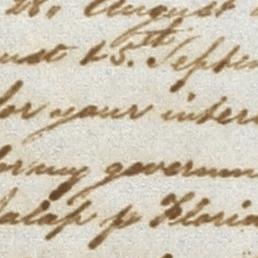 August
ust 15th Septem
for your inter
forming governm
Jalap p Floria